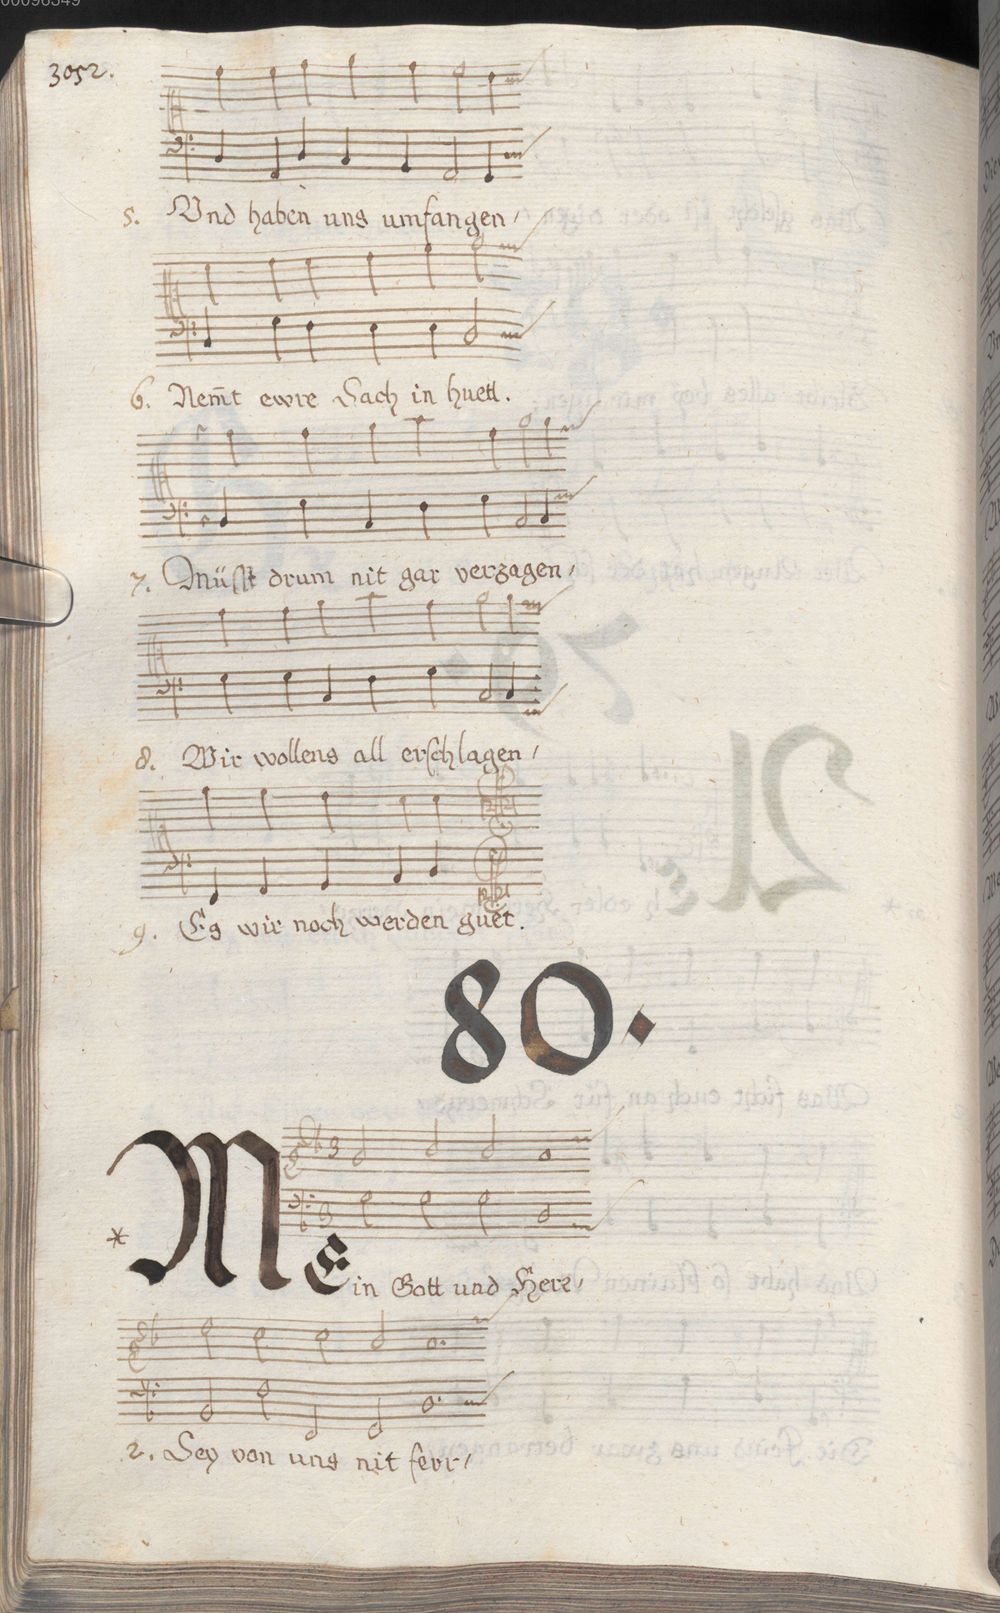 00096349
3052.
5. Vnd haben uns umfangen/
6. Nem̃t ewre Sach in huett.
7. Müsst drum nit gar verzagen/
8. Wir wollens all erschlagen/
9. Es wir noch werden guet.
80.
* MEin Gott und Herr/
2. Sey von uns nit ferr/